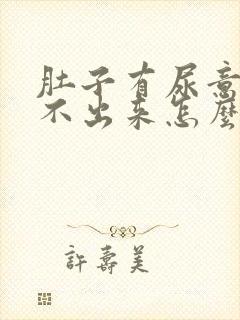 肚子有尿意
不出来怎麽
許壽美